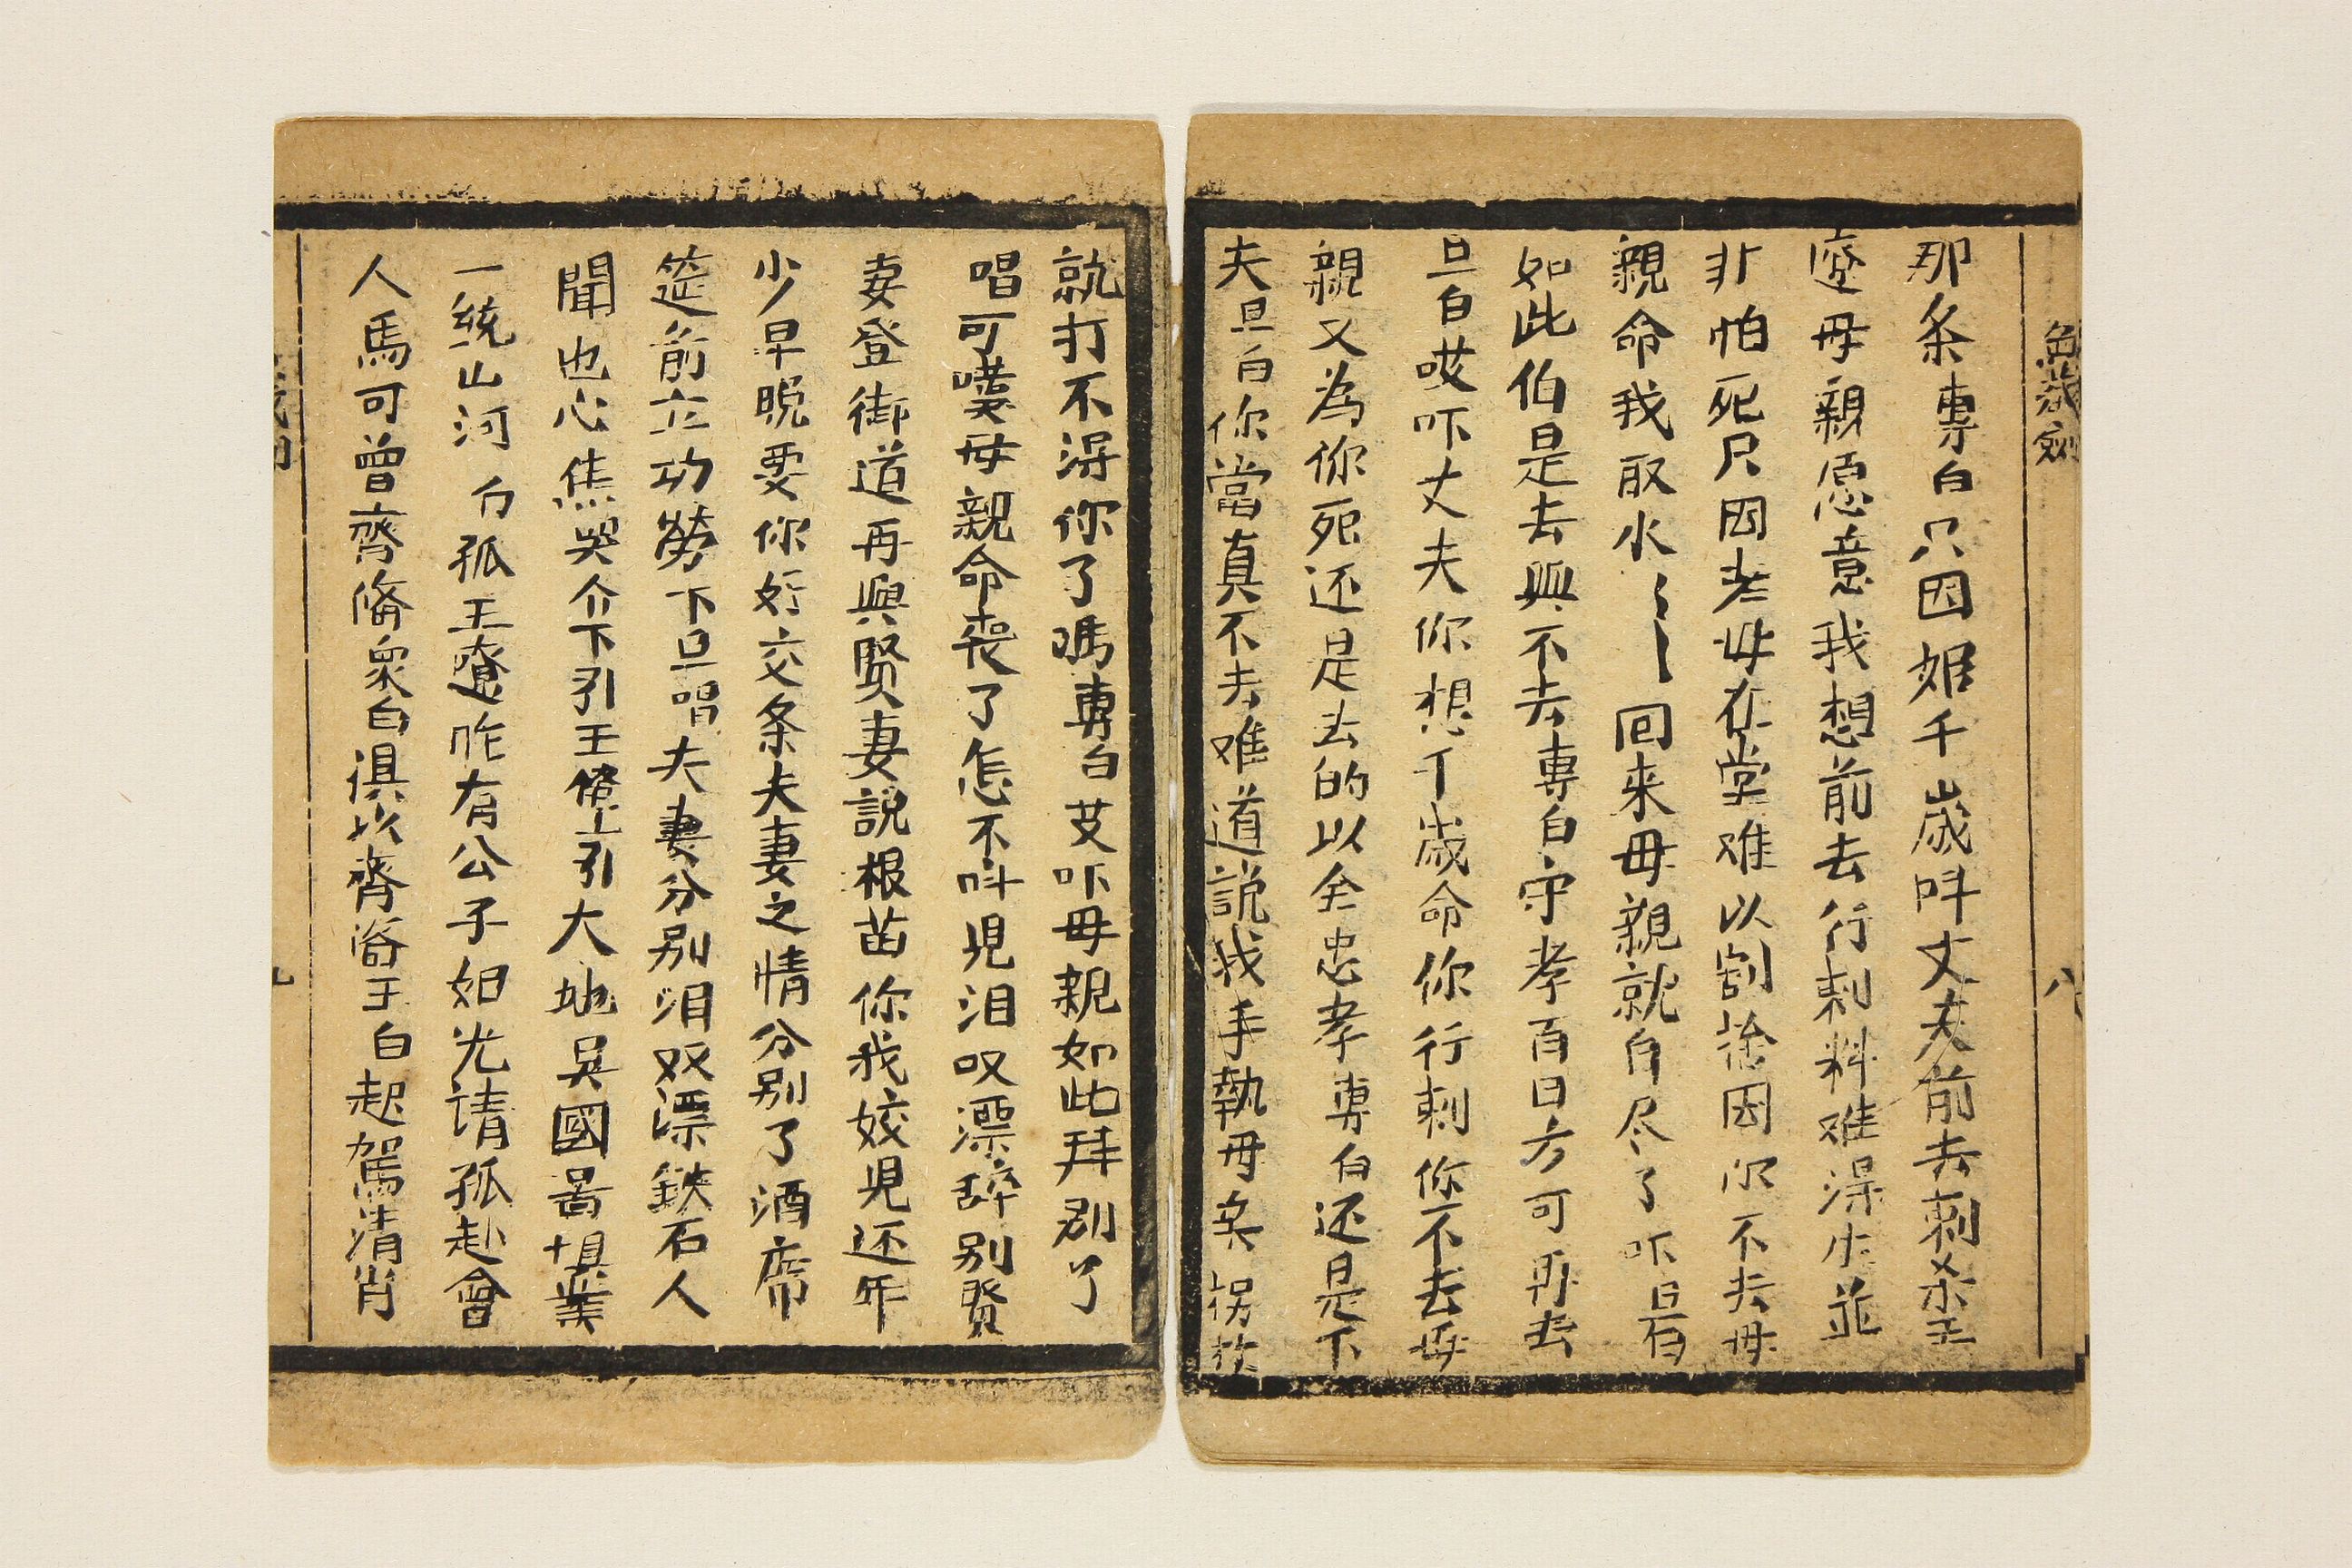 魚藏劍
八
那条專白只因姬千歲呌丈夫前去刺杀王
遼母親愿意我想前去行刺料难淂生並
非怕死只因老母在堂难以割捨因次不去母
親命我取水〻〻回来母親就自尽了吓旦白
如此伯是去與不去專白守孝百日方可再去
旦白哎吓丈夫你想千歲命你行刺你不去母
親又為你死还是去的以全忠孝專白还是下
夫旦白你當真不去难道説我手執母
就打不淂你了嗎專白艾吓母親如此拜别了
唱可嘆母親命丧了怎不呌児泪双漂辞别賢
妻登御道再與賢妻説根苗你我姣児还年
少早晚要你好交条夫妻之情分别了酒席
筵前立功勞下旦唱夫妻分别泪双漂鉄石人
聞也心焦哭介下引王僚上引大地吳國啚惧業
一統山河白孤王遼昨有公子姬光请孤赴會
人馬可曾齊俻衆白俱以齊俻王白起駕清肖
九